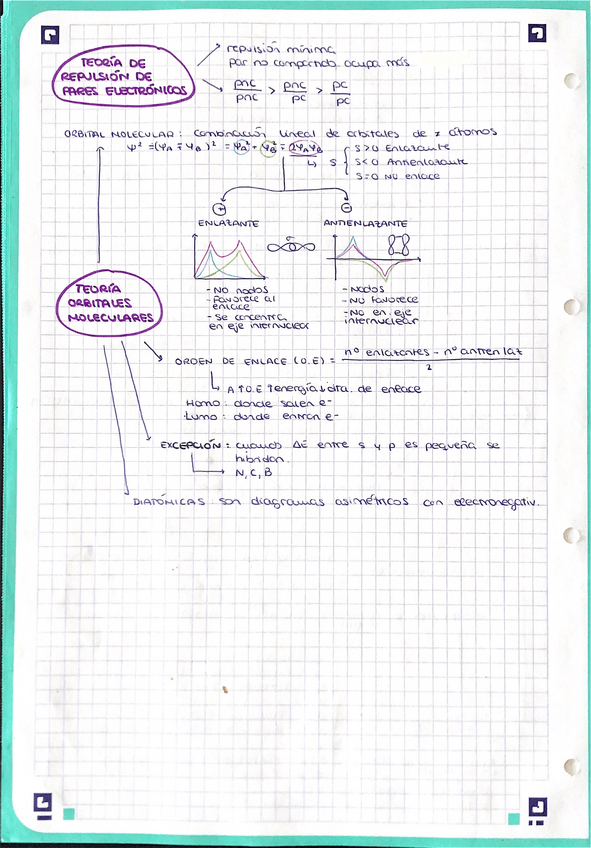 TEORÍA DE
REPULSIÓN DE
PARES ELECTRÓNICOS
repulsión mínima
par no compartido ocupa más
pnc/pnc > pnc/pc > pc/pc
ORBITAL MOLECULAR: combinación lineal de orbitales de x átomos
Ψ² = (Ψ_A ∓ Ψ_B)² = Ψ_A² + Ψ_B² ∓ 2Ψ_AΨ_B
S>0 Enlazante
S
S<0 Antienlazante
S=0 NO enlace
+
-
ENLAZANTE
ANTIENLAZANTE
- NO nodos
- Favorece al
enlace
- Se concentra
en eje internuclear
- Nodos
- NO favorece
- No en eje
internuclear
TEORÍA
ORBITALES
MOLECULARES
ORDEN DE ENLACE (O.E) = nº enlazantes - nº antienlaz / 2
A ↑O.E ↑energía ↓dita. de enlace
Homo: donde salen e-
Lumo: donde entran e-
EXCEPCIÓN: cuando ΔE entre s y p es pequeña se
hibridan.
N, C, B
DIATÓMICAS: son diagramas asimétricos con electronegativ.